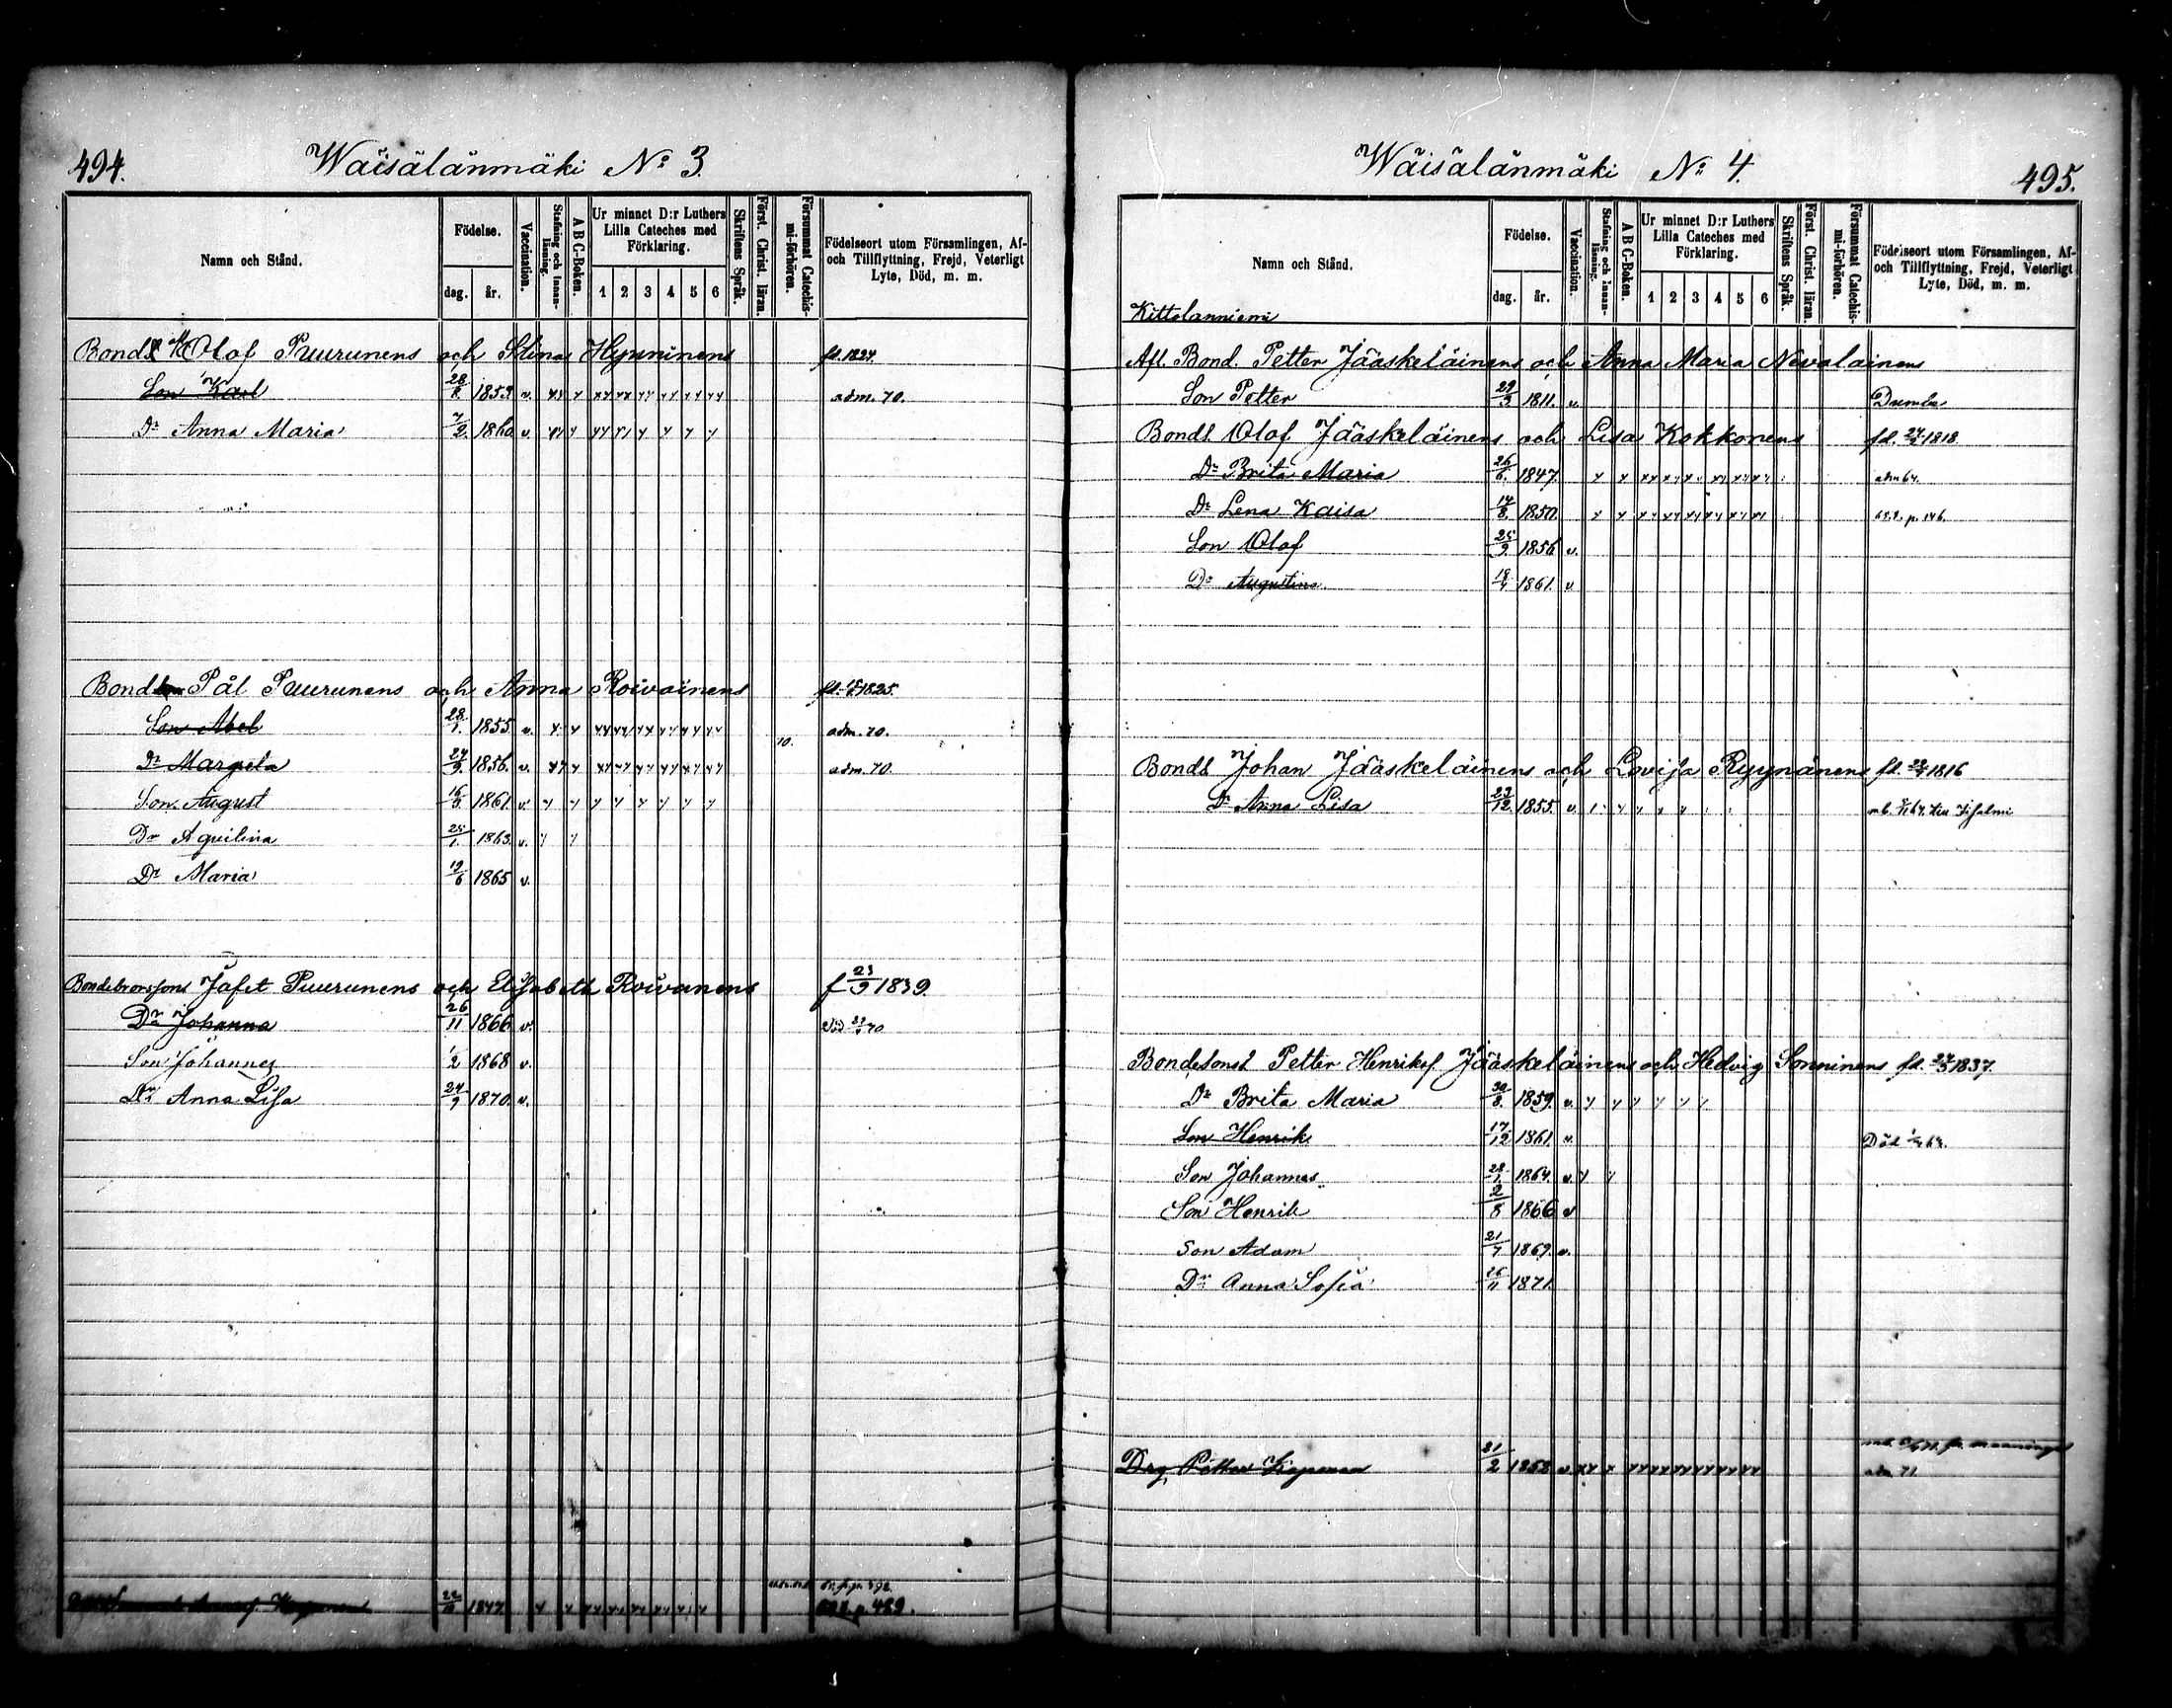 494.
Wäisälänmäki No 3.
Namn och Stånd.
Födelse.
dag. år.
Vaccination.
Stafning och Innan-läsning.
A B C-Boken.
Ur minnet D:r Luthers Lilla Cateches med Förklaring.
1 2 3 4 5 6
Skriftens Språk.
Först. Christ. läran.
Försummat Catechis-mi-förhören.
Födelseort utom Församlingen, Af- och Tillflyttning, Frejd, Veterligt Lyte, Död, m. m.
Olof Puurunens och Stina Hynninens fd. 1824.
Son Karl 28/8. 1853 v. adm. 70.
Dr Anna Maria 7/2. 1860 v.
Pål Puurunens och Anna Roivainens 1825.
Son Abel 28/1. 1855 v. adm. 70.
10.
Dr Margeta 24/9. 1856. v. adm. 70.
Son August 16/9. 1861 v.
Dr Aquilina 25/1. 1863. v.
Dr Maria 19/6 1865 v.
Bondebrorsons Jafet Puurunens och Elisabeth Roivanens f 23/9 1839.
Dr Johanna 26/11 1866 v.
Son Johannes 1/2 1868 v.
Dr Anna Lisa 24/9 1870. v.
1847
p. 489.
495.
Wäisälänmäki No 4.
Namn och Stånd.
Födelse.
dag. år.
Vaccination.
Stafning och Innan-läsning.
A B C-Boken.
Ur minnet D:r Luthers Lilla Cateches med Förklaring.
1 2 3 4 5 6
Skriftens Språk.
Först. Christ. läran.
Försummat Catechis-mi-förhören.
Födelseort utom Församlingen, Af- och Tillflyttning, Frejd, Veterligt Lyte, Död, m. m.
Kittolanniemi
Afl. Bond. Petter Jääskeläinens och Anna Maria Nevalainens
Son Petter 29/3 1811. v. Dumbe
Bonds Olof Jääskeläinens och Lisa Kokkonens fd. 1818
Dr Brita Maria 26/6. 1847 adm 64.
Dr Lena Kaisa 14/8. 1850. p. 146.
Son Olof 25/9. 1856 v.
Dr Augustina 18/4 1861. v.
Bonds Johan Jääskeläinens och Lovisa Ryynänens fd. 1816
Dr Anna Lisa 23/12. 1855. v. Iisalmi
Bondesons Petter Henriksf. Jääskeläinens och Hedvig Sonninens fd. 1837.
Dr Brita Maria 30/8. 1859. v.
Son Henrik 17/12 1861 v. Död
Son Johannes 1864. v.
Son Henrik 2/8 1866 v
Son Adam 21/7 1869. v.
Dr Anna Sofia 26/11 1871.
Drg. Petter 21/2 1853 v. adm 71